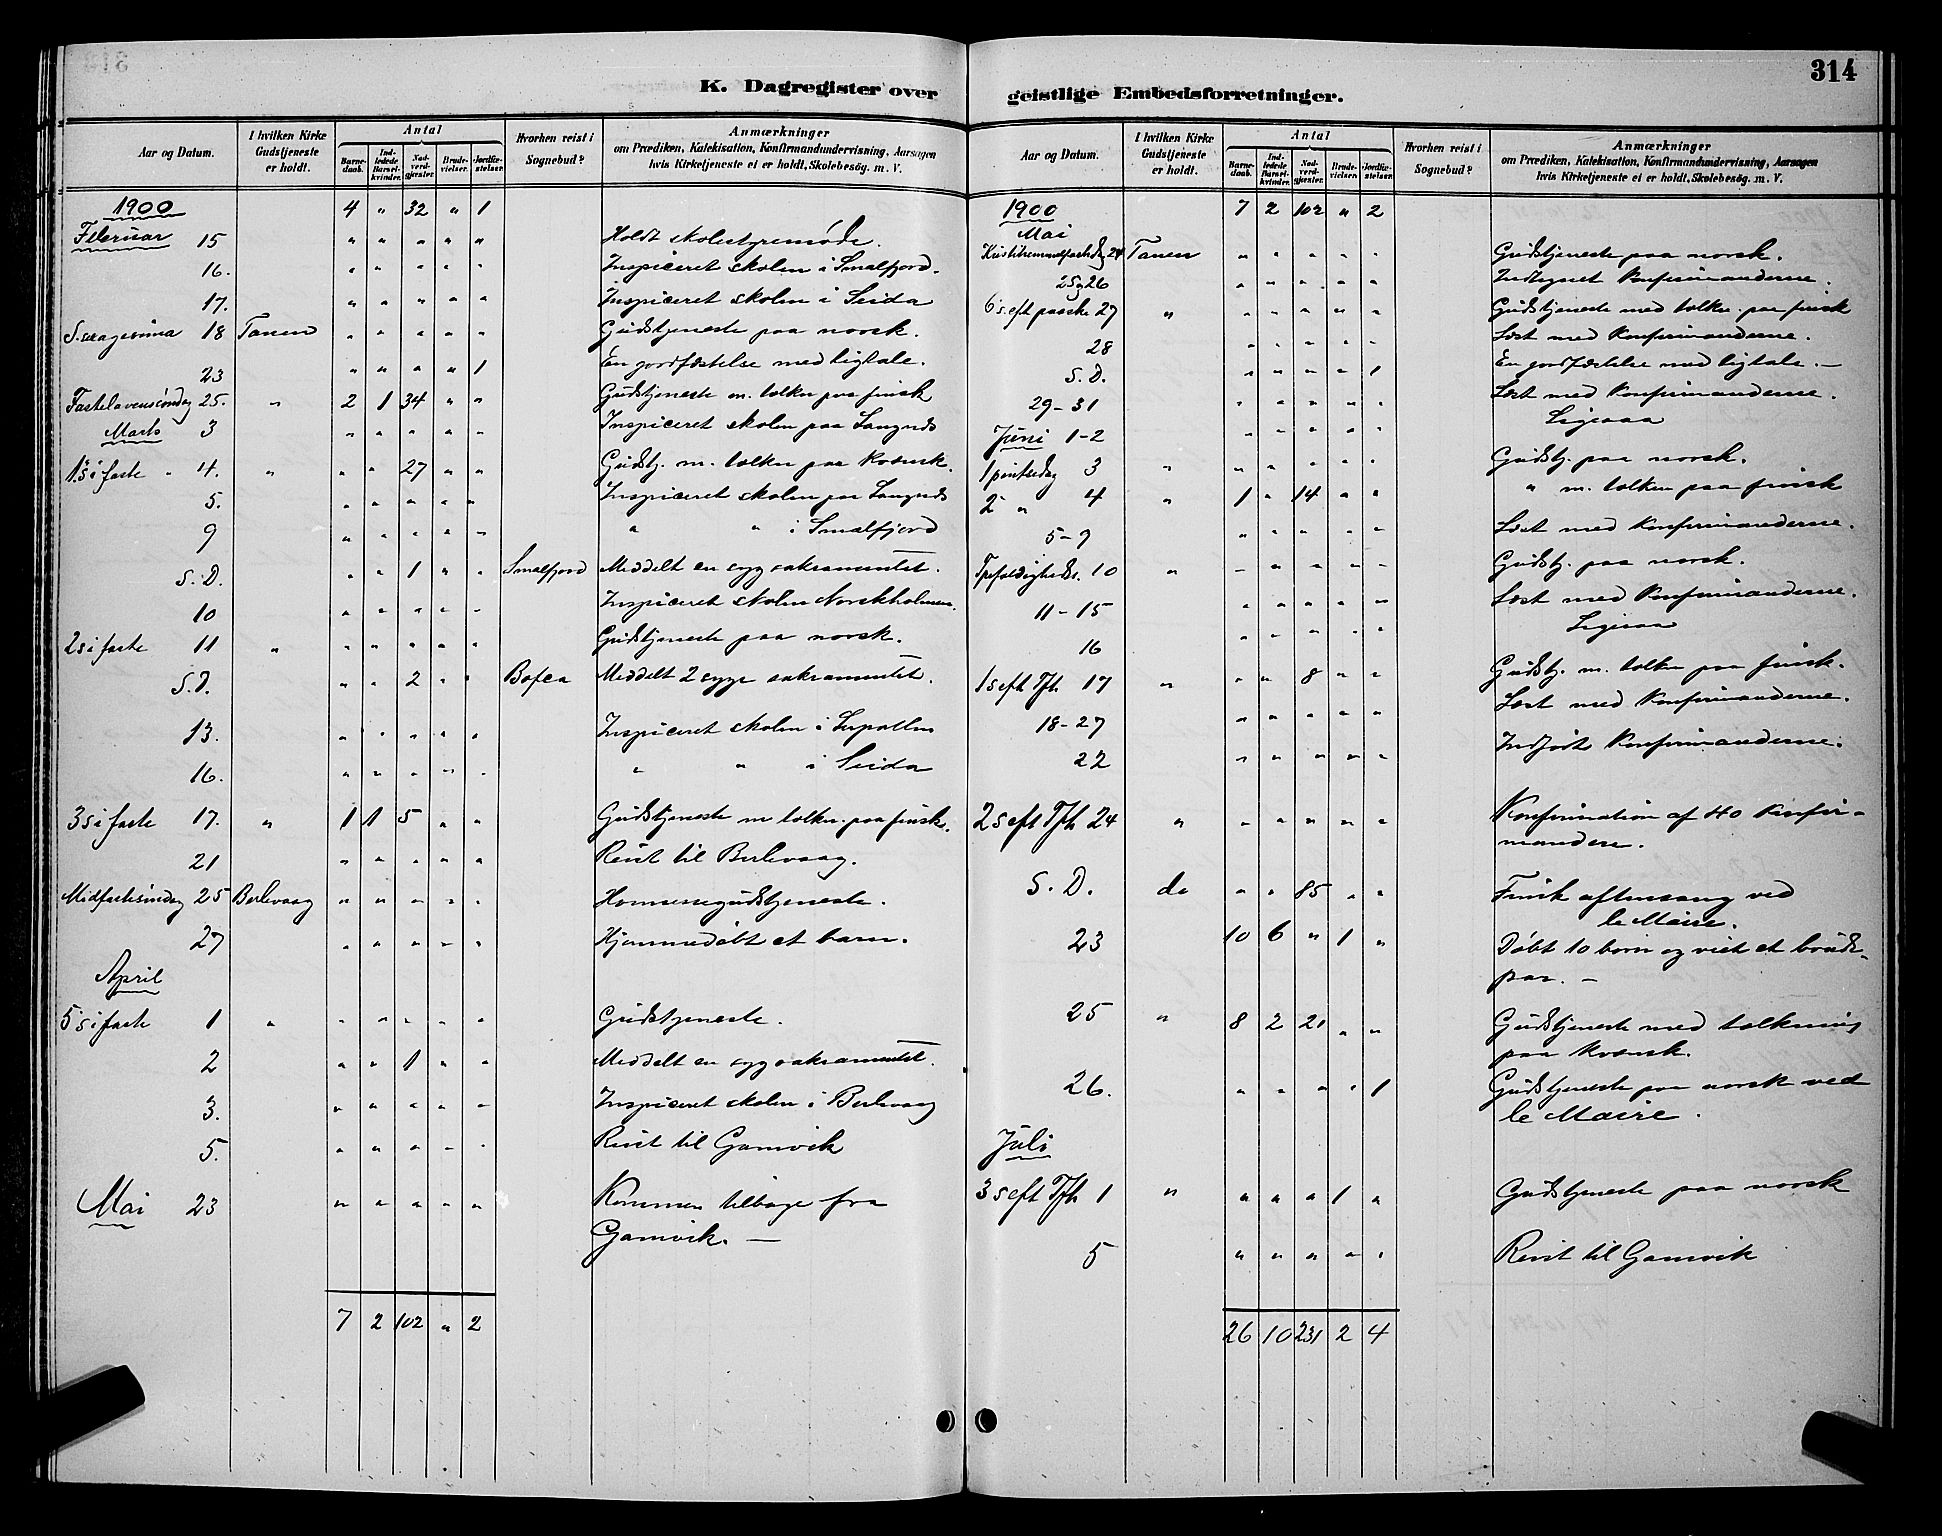 314
K. Dagregister over geistlige Embedsforretninger.
Aar og Datum. I hvilken Kirke Gudstjeneste er holdt. Antal Barnedaab. Indledede Barselkvinder. Nadverdgjester. Brudevielser. Jordfæstelser. Hvorhen reist i Sognebud? Anmærkninger om Prædiken, Katekisation, Konfirmandundervisning, Aarsagen hvis Kirketjeneste ei er holdt, Skolebesøg. m. V.
1900 4 " 32 " 1
Februar 15 " " " " " Holdt skolestyremøde.
16. " " " " " Inspiceret skolen i Smalfjord.
17. " " " " " Inspiceret skolen i Seida
S.exagesima 18 Tanen " " " " " Gudstjeneste paa norsk.
23 " " " " 1 En jordfæstelse med ligtale.
Fastelavenssöndag 25. " 2 1 34 " " Gudstjeneste m. tolker paa finsk
Marts 3 " " " " " Inspiceret skolen paa Langnæs
1. s i faste 4. " " " 27 " " Gudstj. m. tolker paa kvænsk.
5. " " " " " Inspiceret skolen paa Langnæs
9 " " " " " " " i Smalfjord
S.D. " " 1 " " Smalfjord Meddelt en syg sakramentet.
10 " " " " " Inspiceret skolen Norskholmen.
2 s i faste 11 " " " " " " Gudstjeneste paa norsk.
S.D. " " 2 " " Meddelt 2 syge sakramentet.
13. " " " " " Inspiceret skolen i
16. " " " " " " " i Seida
3 s i faste 17. " 1 1 5 " " Gudstjeneste m tolker paa finsk.
21 " " " " " Reist til Berlevaag.
Midfastesöndag 25 Berlevaag " " " " " Gudstjeneste.
27 " " " " " Hjemmedøbt et barn.
April
5 s i faste 1 " " " " " " Gudstjeneste.
2 " " 1 " " Meddelt en syg sakramentet.
3. " " " " " Inspiceret skolen i Berlevaag
5. " " " " " Reist til Gamvik
Mai 23 " " " " " Kommen tilbage fra
Gamvik. —
7 2 102 " 2
Aar og Datum. I hvilken Kirke Gudstjeneste er holdt. Antal Barnedaab. Indledede Barselkvinder. Nadverdgjester. Brudevielser. Jordfæstelser. Hvorhen reist i Sognebud? Anmærkninger om Prædiken, Katekisation, Konfirmandundervisning, Aarsagen hvis Kirketjeneste ei er holdt, Skolebesøg. m. V.
1900 7 2 102 " 2
Mai
Kristihimmelfartsdag 24 Tanen " " " " " Gudstjeneste paa norsk.
25 og 26 " " " " " Indtegnet konfirmanderne.
6 s. eft paaske 27 " " " " " " Gudstjeneste med tolker paa finsk
28 " " " " " Læst med konfirmanderne.
S.D. " " " " 1 En jordfæstelse med ligtale. —
29-31 " " " " " Læst med konfirmanderne.
Juni 1-2 " " " " " Ligesaa
1 pintsedag 3 " " " " " " Gudstj. paa norsk.
2 " 4 " 1 " 14 " " " m. tolker paa finsk
5-9 " " " " " Læst med konfirmanderne.
Trefoldigheds. 10 " " " " " " Gudstj. paa norsk.
11-15 " " " " " Læst med konfirmanderne.
16 " " " " " Ligesaa
1 s eft Tfh 17 " " " 8 " " Gudstj. m. tolker paa finsk.
18-27 " " " " " Læst med konfirmanderne.
22 " " " " " Indført konfirmanderne.
2 s eft Tfh 24 " " " " " " Konfirmation af 40 konfir-
mandere.
S.D. do " " 85 " " Finsk aftensang ved
le Maire.
23 10 6 " 1 " Døbt 10 børn og viet et brude-
par. —
25 " 8 2 21 " " Gudstjeneste med tolkning
paa kvænsk.
26. " " " " 1 Gudstjeneste paa norsk ved
le Maire.
Juli
3 s eft Tfh 1 " " " " 1 " Gudstjeneste paa norsk
5 " " " " " Reist til Gamvik
26 10 231 2 4